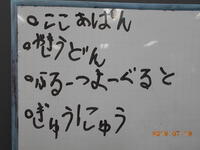 ○ここあぱん
○やきうどん
○ふるーつよーぐると
○ぎゅうにゅう